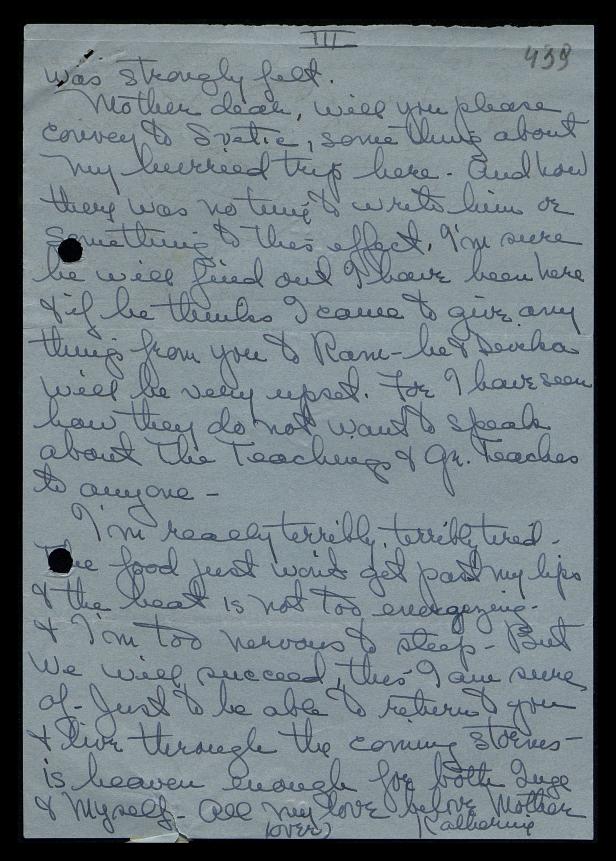 III
433
was strongly felt.
Mother dear, will you please
convey to Svetic, something about
my hurried trip here - And how
there was no time to write him or
something to this effect. I'm sure
he will find out I have been here
& if he thinks I came to give any
thing from you to Ram - he & Devika
will be very upset. For I have seen
how they do not want to speak
about the Teachings & Gr. Teaches
to anyone -
I'm really terribly, terribly tired -
The food just wont get past my lips
& the heat is not too energizing -
& I'm too nervous to sleep - But
we will succeed, this I am sure
of - Just to be able to return to you
& live through the coming storms -
is heaven enough for both Inge
& Myself - All my love belove Mother
(over) Katherine